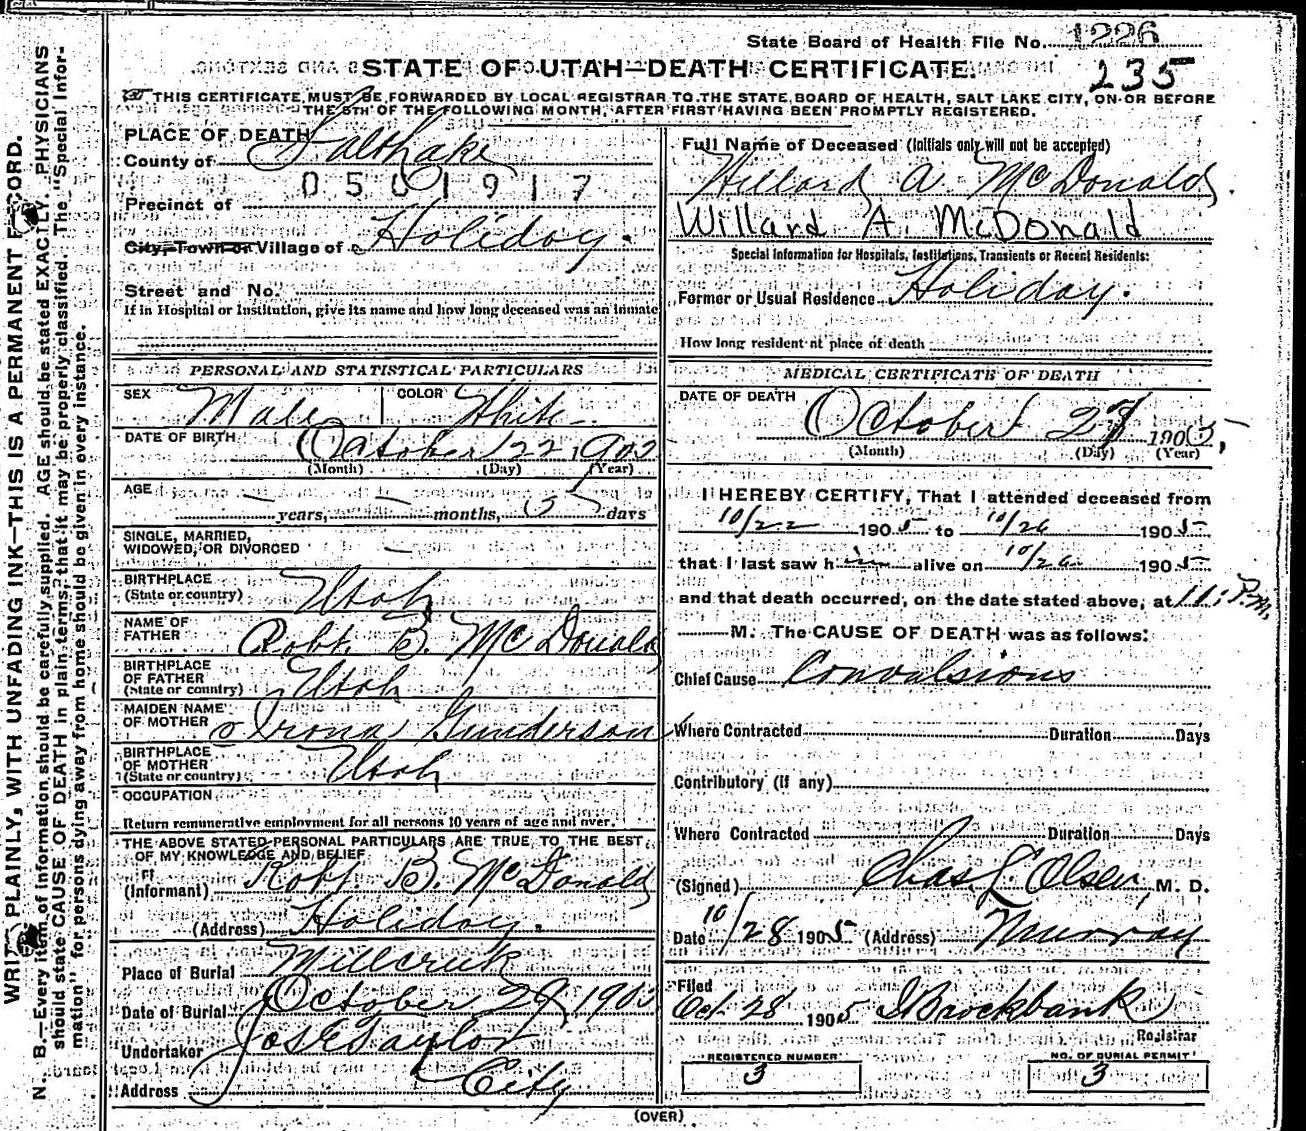 State Board of Health File No. 1226
STATE OF UTAH—DEATH CERTIFICATE.
235
THIS CERTIFICATE MUST BE FORWARDED BY LOCAL REGISTRAR TO THE STATE BOARD OF HEALTH, SALT LAKE CITY, ON OR BEFORE
THE 5TH OF THE FOLLOWING MONTH, AFTER FIRST HAVING BEEN PROMPTLY REGISTERED.
PLACE OF DEATH
County of Salt Lake
0501917
Precinct of
City, Town or Village of Holiday.
Street and No.
If in Hospital or Institution, give its name and how long deceased was an inmate
PERSONAL AND STATISTICAL PARTICULARS
SEX Male COLOR White
DATE OF BIRTH October 22 190
(Month) (Day) (Year)
AGE
— years, — months, 5 days
SINGLE, MARRIED,
WIDOWED, OR DIVORCED —
BIRTHPLACE
(State or country) Utah
NAME OF
FATHER Robt. B. McDonald
BIRTHPLACE
OF FATHER
(State or country) Utah
MAIDEN NAME
OF MOTHER Irona Gunderson
BIRTHPLACE
OF MOTHER
(State or country) Utah
OCCUPATION
Return remunerative employment for all persons 10 years of age and over.
THE ABOVE STATED PERSONAL PARTICULARS ARE TRUE TO THE BEST
OF MY KNOWLEDGE AND BELIEF
(Informant) Robt. B. McDonald
(Address) Holiday.
Place of Burial Millcreek
Date of Burial October 29, 190
Undertaker Jos E Taylor
Address City
Full Name of Deceased (Initials only will not be accepted)
Willard A McDonald.
Willard A. McDonald
Special Information for Hospitals, Institutions, Transients or Recent Residents:
Former or Usual Residence Holiday.
How long resident at place of death
MEDICAL CERTIFICATE OF DEATH
DATE OF DEATH October 27 1905
(Month) (Day) (Year)
I HEREBY CERTIFY, That I attended deceased from
10/22 1905 to 10/26 1905
that I last saw him alive on 10/26 1905
and that death occurred, on the date stated above, at 11: P.M.
M. The CAUSE OF DEATH was as follows:
Chief Cause Convulsions
Where Contracted Duration Days
Contributory (if any)
Where Contracted Duration Days
(Signed) Chas. L. Olsen, M. D.
Date 10/28 1905 (Address) Murray
Filed
Oct 28 1905 Brockbank
Registrar
REGISTERED NUMBER
3
NO. OF BURIAL PERMIT
3
(OVER)
PLAINLY, WITH UNFADING INK—THIS IS A PERMANENT
N. B.—Every item of information should be carefully supplied. AGE should be stated EXACTLY. PHYSICIANS
should state CAUSE OF DEATH in plain terms, that it may be properly classified. The "Special Infor-
mation" for persons dying away from home should be given in every instance.